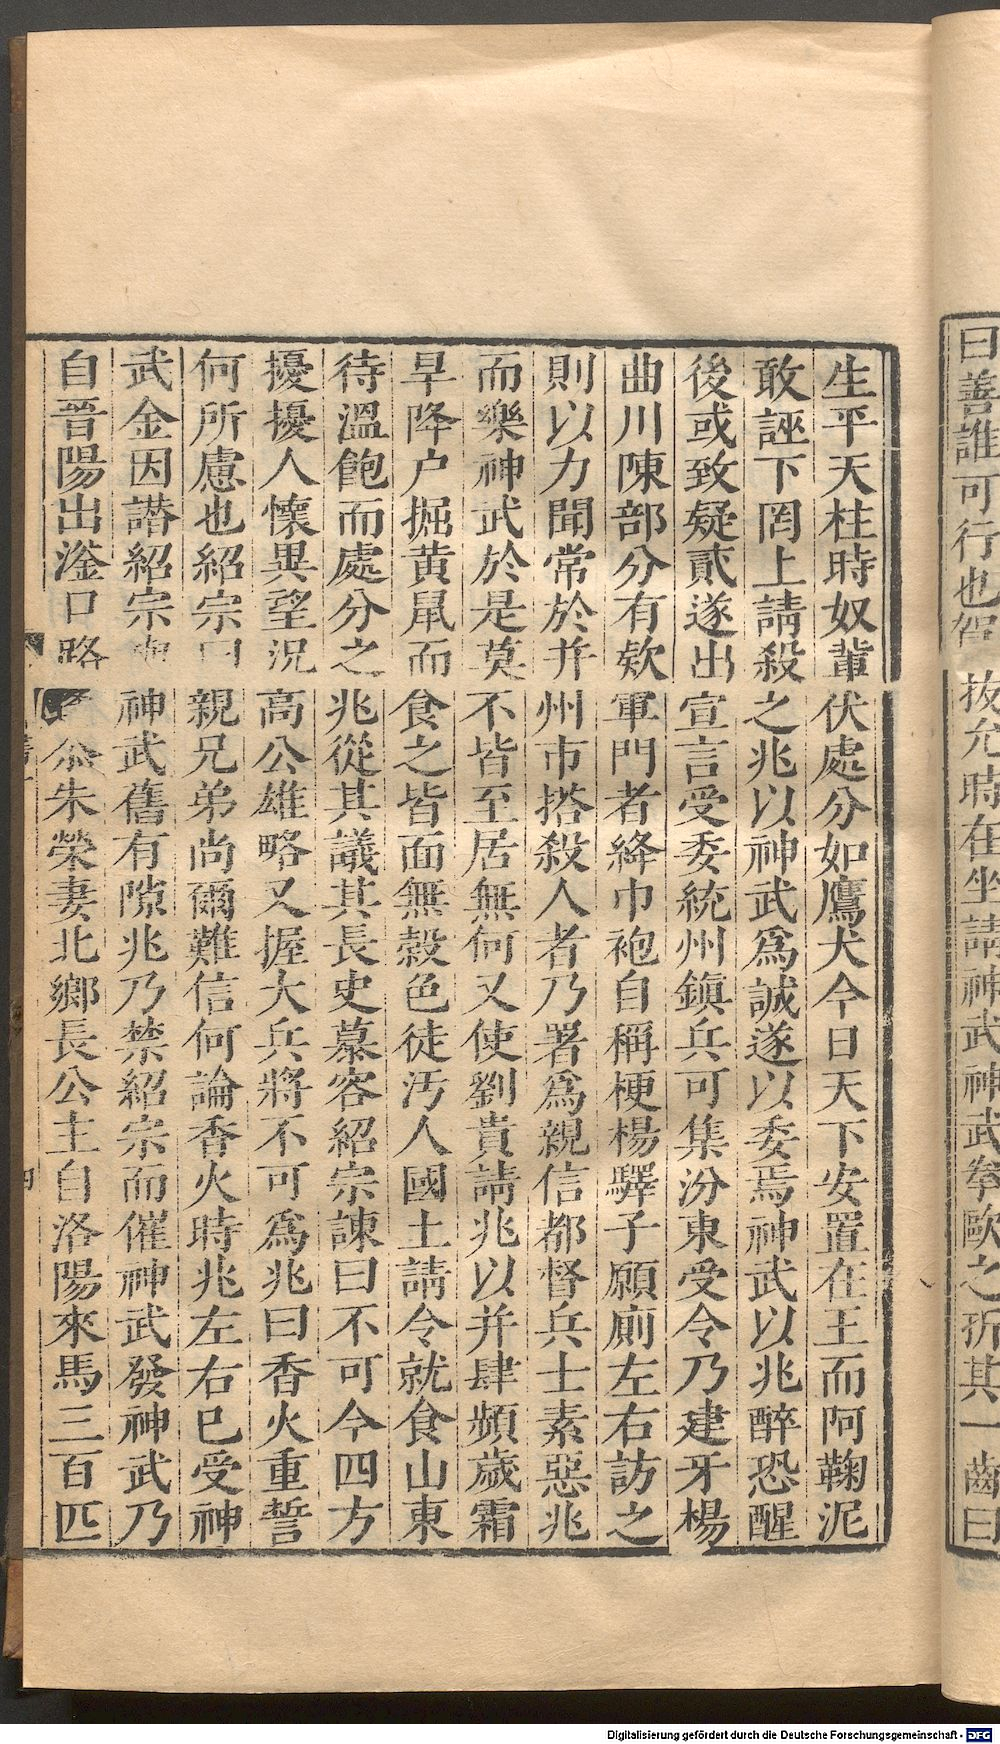 曰善誰可行也賀拔允時在坐請神武神武拳歐之折其一齒曰
生平天柱時奴輩伏處分如鷹犬今日天下安置在王而阿鞠泥
敢誣下罔上請殺之兆以神武爲誠遂以委焉神武以兆醉恐醒
後或致疑貳遂出宣言受委統州鎮兵可集汾東受令乃建牙楊
曲川陳部分有欵軍門者絳巾袍自稱梗楊驛子願廁左右訪之
則以力聞常於并州市搭殺人者乃署爲親信都督兵士素惡兆
而樂神武於是莫不皆至居無何又使劉貴請兆以并肆頻歲霜
旱降户掘黃鼠而食之皆面無穀色徒汚人國土請令就食山東
待溫飽而處分之兆從其議其長史慕容紹宗諫曰不可今四方
擾擾人懷異望況高公雄略又握大兵將不可爲兆曰香火重誓
何所慮也紹宗曰親兄弟尚爾難信何論香火時兆左右已受神
武金因譖紹宗與神武舊有隙兆乃禁紹宗而催神武發神武乃
自晉陽出滏口路尒朱榮妻北鄉長公主自洛陽來馬三百匹
四
Digitalisierung gefördert durch die Deutsche Forschungsgemeinschaft - DFG